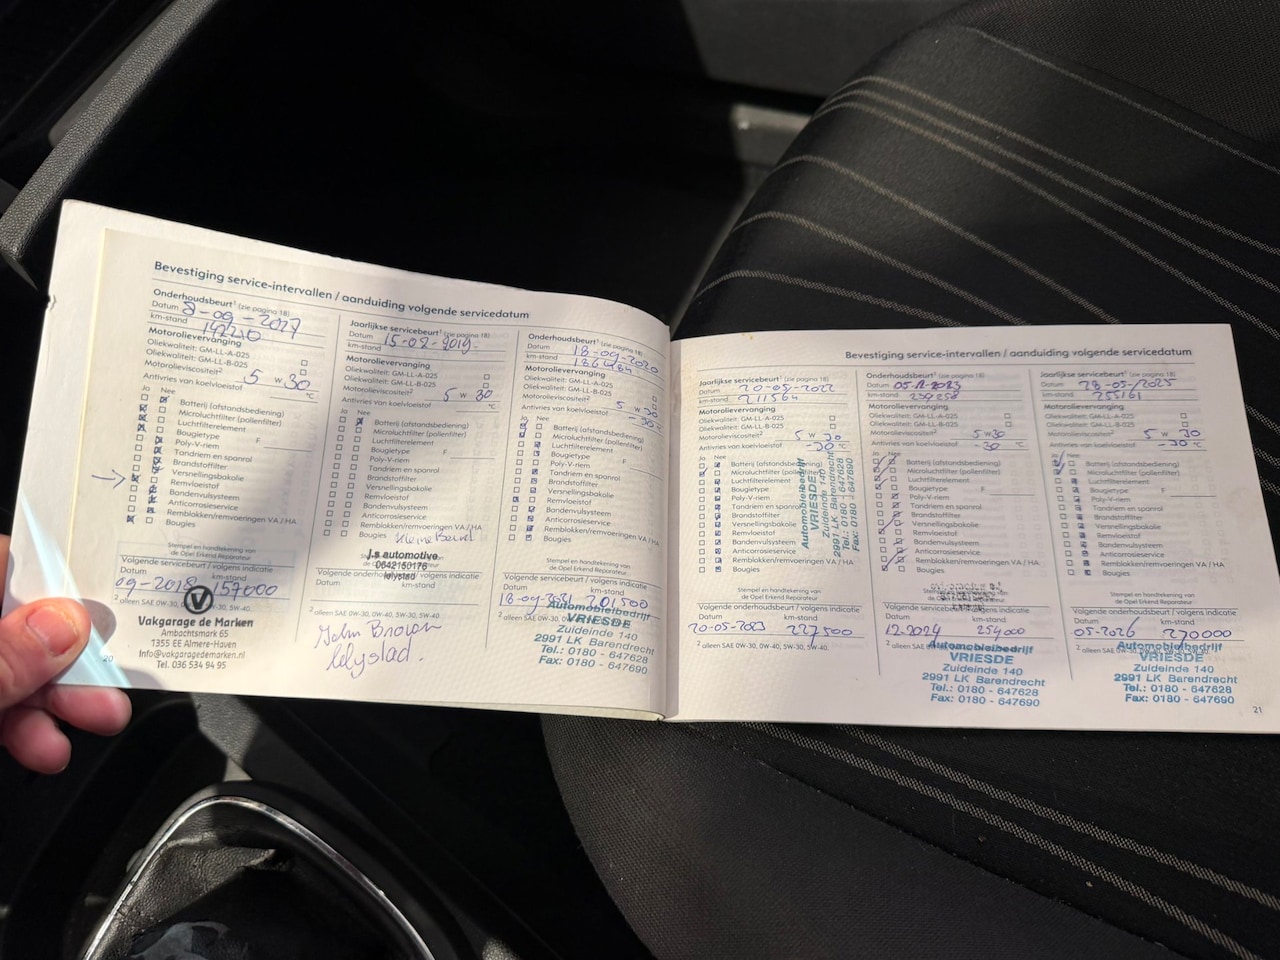 Bevestiging service-intervallen / aanduiding volgende servicedatum
Onderhoudsbeurt¹ (zie pagina 18)
Datum
km-stand
Motorolievervanging
Oliekwaliteit: GM-LL-A-025
Oliekwaliteit: GM-LL-B-025
Motorolieviscositeit² 5 w 30
Antivries van koelvloeistof °C
Ja Nee
Batterij (afstandsbediening)
Microluchtfilter (pollenfilter)
Luchtfilterelement
Bougietype F
Poly-V-riem
Tandriem en spanrol
Brandstoffilter
Versnellingsbakolie
Remvloeistof
Bandenvulsysteem
Anticorrosieservice
Remblokken/remvoeringen VA / HA
Bougies
Stempel en handtekening van
de Opel Erkend Reparateur
Volgende servicebeurt / volgens indicatie
Datum km-stand
09-2018 157000
² alleen SAE 0W-30, 0W-40, 5W-30, 5W-40.
Vakgarage de Marken
Ambachtsmark 65
1355 EE Almere-Haven
Info@vakgaragedemarken.nl
Tel. 036 534 94 95
20
Jaarlijkse servicebeurt¹ (zie pagina 18)
Datum 15-02-2019
km-stand
Motorolievervanging
Oliekwaliteit: GM-LL-A-025
Oliekwaliteit: GM-LL-B-025
Motorolieviscositeit² 5 w 30
Antivries van koelvloeistof °C
Ja Nee
Batterij (afstandsbediening)
Microluchtfilter (pollenfilter)
Luchtfilterelement
Bougietype F
Poly-V-riem
Tandriem en spanrol
Brandstoffilter
Versnellingsbakolie
Remvloeistof
Bandenvulsysteem
Anticorrosieservice
Remblokken/remvoeringen VA / HA
Bougies Kleine Beurt
J.s automotive
0642150176
lelystad
Volgende onderhoudsbeurt / volgens indicatie
Datum km-stand
² alleen SAE 0W-30, 0W-40, 5W-30, 5W-40
John Brown
lelystad.
Onderhoudsbeurt¹ (zie pagina 18)
Datum 18-09-2020
km-stand 186484
Motorolievervanging
Oliekwaliteit: GM-LL-A-025
Oliekwaliteit: GM-LL-B-025
Motorolieviscositeit² 5 w 30
Antivries van koelvloeistof -30 °C
Ja Nee
Batterij (afstandsbediening)
Microluchtfilter (pollenfilter)
Luchtfilterelement
Bougietype F
Poly-V-riem
Tandriem en spanrol
Brandstoffilter
Versnellingsbakolie
Remvloeistof
Bandenvulsysteem
Anticorrosieservice
Remblokken/remvoeringen VA / HA
Bougies
Stempel en handtekening van
de Opel Erkend Reparateur
Volgende servicebeurt / volgens indicatie
Datum km-stand
18-09-2021 201500
Automobielbedrijf
VRIESDE
Zuideinde 140
2991 LK Barendrecht
Tel.: 0180 - 647628
Fax: 0180 - 647690
Bevestiging service-intervallen / aanduiding volgende servicedatum
Jaarlijkse servicebeurt¹ (zie pagina 18)
Datum 20-05-2022
km-stand 211564
Motorolievervanging
Oliekwaliteit: GM-LL-A-025
Oliekwaliteit: GM-LL-B-025
Motorolieviscositeit² 5 w 30
Antivries van koelvloeistof -30 °C
Ja Nee
Batterij (afstandsbediening)
Microluchtfilter (pollenfilter)
Luchtfilterelement
Bougietype
Poly-V-riem
Tandriem en spanrol
Brandstoffilter
Versnellingsbakolie
Remvloeistof
Bandenvulsysteem
Anticorrosieservice
Remblokken/remvoeringen VA / HA
Bougies
Automobielbedrijf
VRIESDE
Zuideinde 140
2991 LK Barendrecht
Tel.: 0180 - 647628
Fax: 0180 - 647690
Stempel en handtekening van
de Opel Erkend Reparateur
Volgende onderhoudsbeurt / volgens indicatie
Datum km-stand
20-05-2023 227500
² alleen SAE 0W-30, 0W-40, 5W-30, 5W-40.
Onderhoudsbeurt¹ (zie pagina 18)
Datum
km-stand 239258
Motorolievervanging
Oliekwaliteit: GM-LL-A-025
Oliekwaliteit: GM-LL-B-025
Motorolieviscositeit² 5 w 30
Antivries van koelvloeistof -30 °C
Ja Nee
Batterij (afstandsbediening)
Microluchtfilter (pollenfilter)
Luchtfilterelement
Bougietype F
Poly-V-riem
Tandriem en spanrol
Brandstoffilter
Versnellingsbakolie
Remvloeistof
Bandenvulsysteem
Anticorrosieservice
Remblokken/remvoeringen VA / HA
Bougies
Volgende servicebeurt / volgens indicatie
Datum km-stand
12-2024 254000
Automobielbedrijf
VRIESDE
Zuideinde 140
2991 LK Barendrecht
Tel.: 0180 - 647628
Fax: 0180 - 647690
Jaarlijkse servicebeurt¹ (zie pagina 18)
Datum 28-05-2025
km-stand 255161
Motorolievervanging
Oliekwaliteit: GM-LL-A-025
Oliekwaliteit: GM-LL-B-025
Motorolieviscositeit² 5 w 30
Antivries van koelvloeistof -30 °C
Ja Nee
Batterij (afstandsbediening)
Microluchtfilter (pollenfilter)
Luchtfilterelement
Bougietype F
Poly-V-riem
Tandriem en spanrol
Brandstoffilter
Versnellingsbakolie
Remvloeistof
Bandenvulsysteem
Anticorrosieservice
Remblokken/remvoeringen VA / HA
Bougies
Stempel en handtekening van
de Opel Erkend Reparateur
Volgende onderhoudsbeurt / volgens indicatie
Datum km-stand
05-2026 270000
Automobielbedrijf
VRIESDE
Zuideinde 140
2991 LK Barendrecht
Tel.: 0180 - 647628
Fax: 0180 - 647690
21